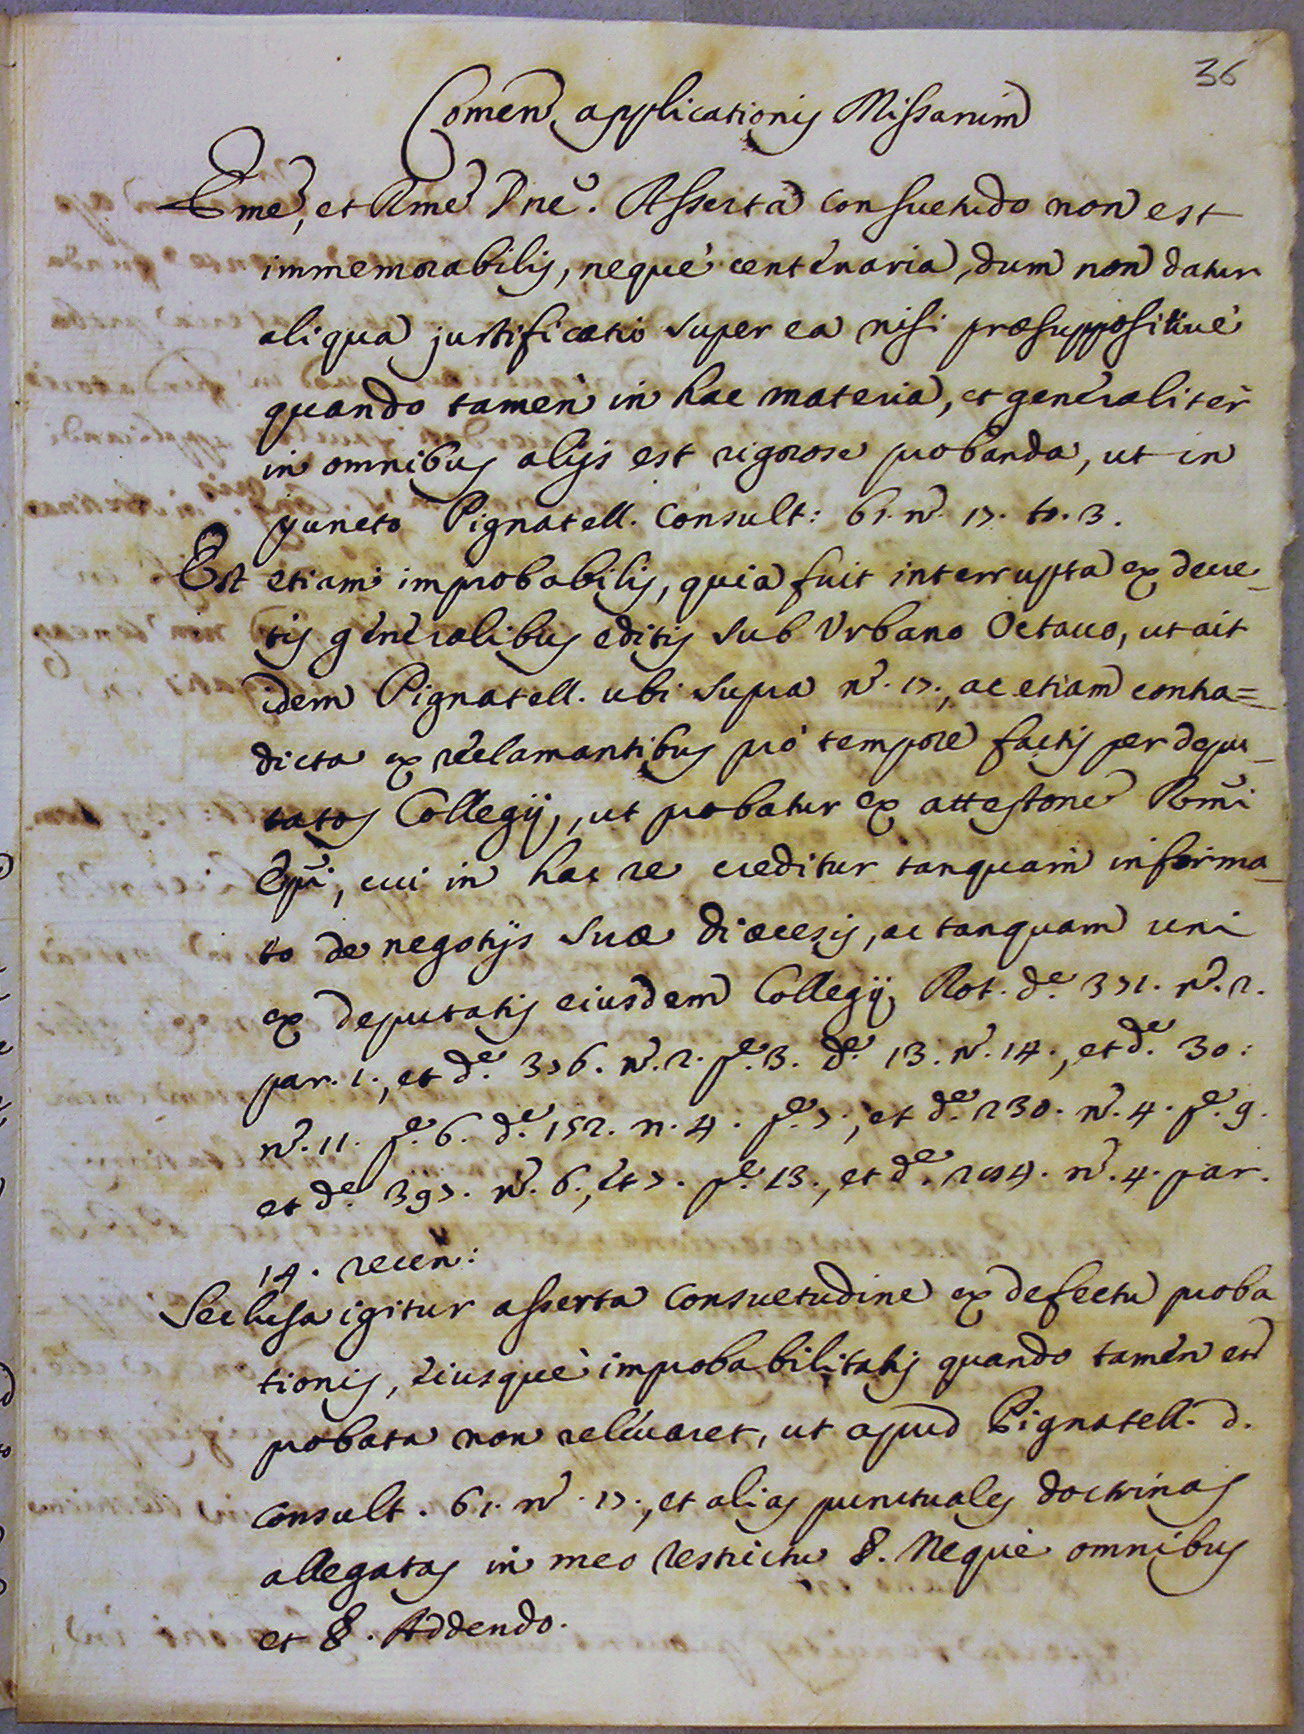 36
Comen. applicationis Missarum
Eme, et Rme Dne. Asserta consuetudo non est
immemorabilis, neque centenaria, dum non datur
aliqua justificatio super ea nisi præsuppositive
quando tamen in hac materia, et generaliter
in omnibus alijs est rigorose probanda, ut in
puncto Pignatell. Consult: 61. n. 17. to. 3.
Est etiam improbabilis, quia fuit interrupta ex decre_
tis generalibus editis sub Vrbano Octavo, ut ait
idem Pignatell. ubi supra n. 17., ac etiam contra=
dicta ex reclamantibus pro tempore factis per depu_
tatos Collegij, ut probatur ex attestone Rmi
Epi, cui in hac re creditur tanquam informa_
to de negotijs suæ diæcesis, ac tanquam uni
ex deputatis eiusdem Collegij Rot. de. 371. n. 2.
par. 1., et de. 376. n. 2. pe. 3. de. 13. n. 14., et de. 30:
n. 11. pe. 6. de. 152. n. 4. pe. 7., et de. 230. n. 4. pe. 9.
et de. 397. n. 6., et 7. pe. 13., et de. n. 4. par.
14. recen:
Seclusa igitur asserta consuetudine ex defectu proba
tionis, eiusque improbabilitatis quando tamen et
probata non relevaret, ut apud Pignatell. d.
consult. 61. n. 17., et alias punctuales doctrinas
allegatas in meo restrictu §. Neque omnibus
et §. Addendo.